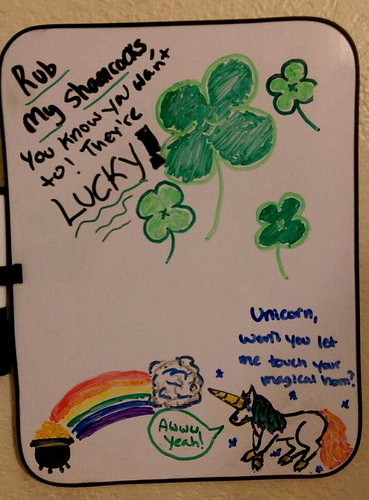 Rub
My Shamrocks,
You Know You Want
to! They're
LUCKY!
Unicorn,
won't you let
me touch your
magical horn?
Awww,
Yeah!